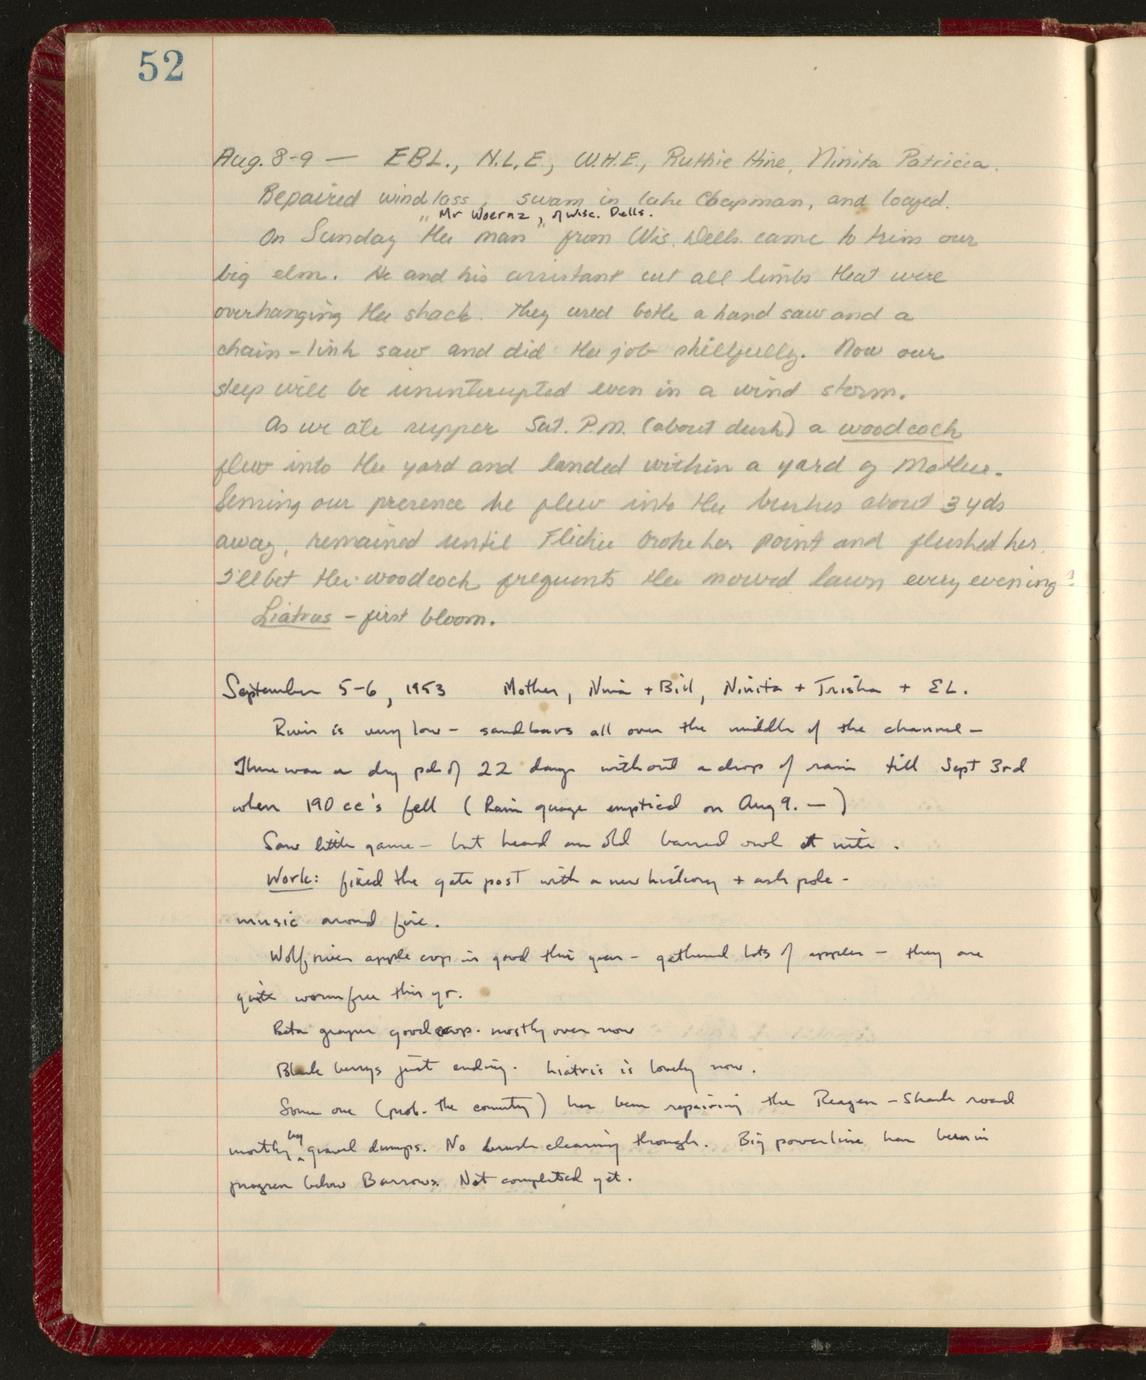 52
Aug. 8-9 — EBL., N.L.E., W.H.E., Ruthie Hine, Ninita Patricia.
Repaired windlass, swam in lake Chapman, and loafed.
"Mr Woernz, of Wisc. Dells.
On Sunday the man" from Wis. Dells came to trim our
big elm. He and his assistant cut all limbs that were
overhanging the shack. They used both a hand saw and a
chain-link saw and did the job skillfully. Now our
sleep will be uninterrupted even in a wind storm.
As we ate supper Sat. P.M. (about dusk) a woodcock
flew into the yard and landed within a yard of Mother.
Sensing our presence he flew into the bushes about 3 yds
away, remained until Flickie broke her point and flushed her.
I'll bet the woodcock frequents the mowed lawn every evening!
Liatrus - first bloom.
September 5-6, 1953 Mother, Nina + Bill, Ninita + Trisha + EL.
River is very low - sandbars all over the middle of the channel -
There was a dry pd of 22 days without a drop of rain till Sept 3rd
when 190 cc's fell (Rain guage emptied on Aug 9. —)
Saw little game - but heard an old barred owl at nite.
Work: fixed the gate post with a new hickory + ash pole -
music around fire.
Wolf river apple crop is good this year - gathered lots of apples - they are
quite wormfree this yr.
Beta grapes good crop. mostly over now
Black berrys just ending. Liatris is lovely now.
Some one (prob. the county) has been repairing the Reagen - Shack road
mostly by gravel dumps. No brush clearing though. Big powerline has been in
progress below Barrows. Not completed yet.